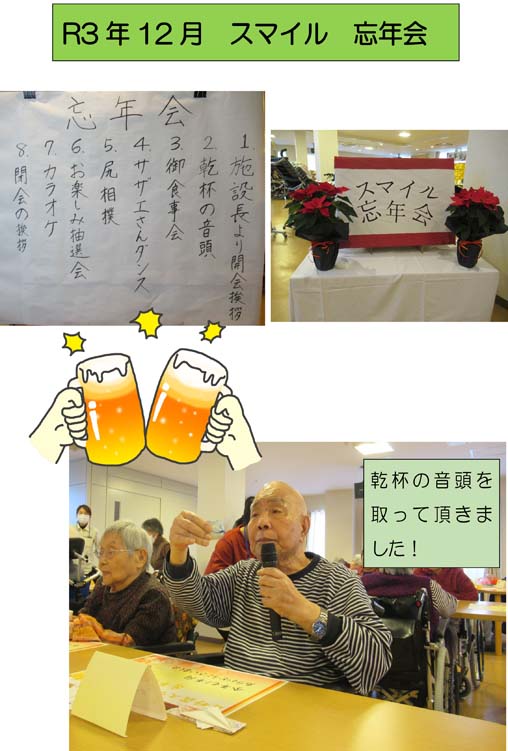 R3年12月　スマイル　忘年会
忘年会
1. 施設長より開会挨拶
2. 乾杯の音頭
3. 御食事会
4. サザエさんダンス
5. 尻相撲
6. お楽しみ抽選会
7. カラオケ
8. 閉会の挨拶
スマイル
忘年会
乾杯の音頭を
取って頂きま
した！